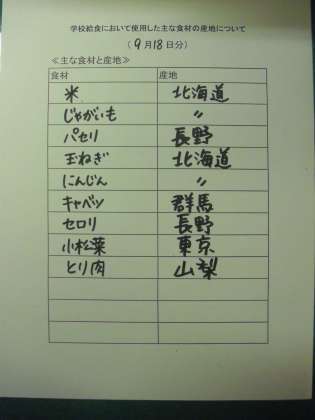 学校給食において使用した主な食材の産地について
（9月18日分）
≪主な食材と産地≫
食材 産地
米 北海道
じゃがいも 〃
パセリ 長野
玉ねぎ 北海道
にんじん 〃
キャベツ 群馬
セロリ 長野
小松菜 東京
とり肉 山梨